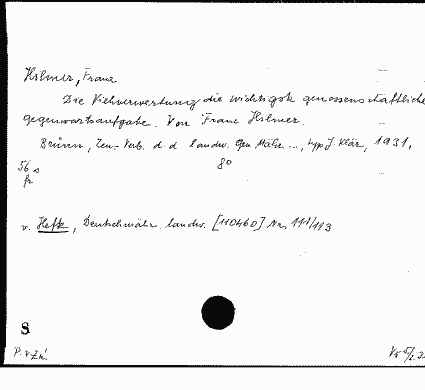 Hilmer, Franz
Die Viehverwertung die wichtigste genossenschaftliche
Gegenwartsaufgabe. Von Franz Hilmer.
Brünn, Zen.-Verb. d. d. landw. Gen. Mähr..., typ J. Klär, 1931,
56 s 8°
v. Hefte, Deutschmähr. landw. [110460] Nr. 111/113
S
P. v Zn.